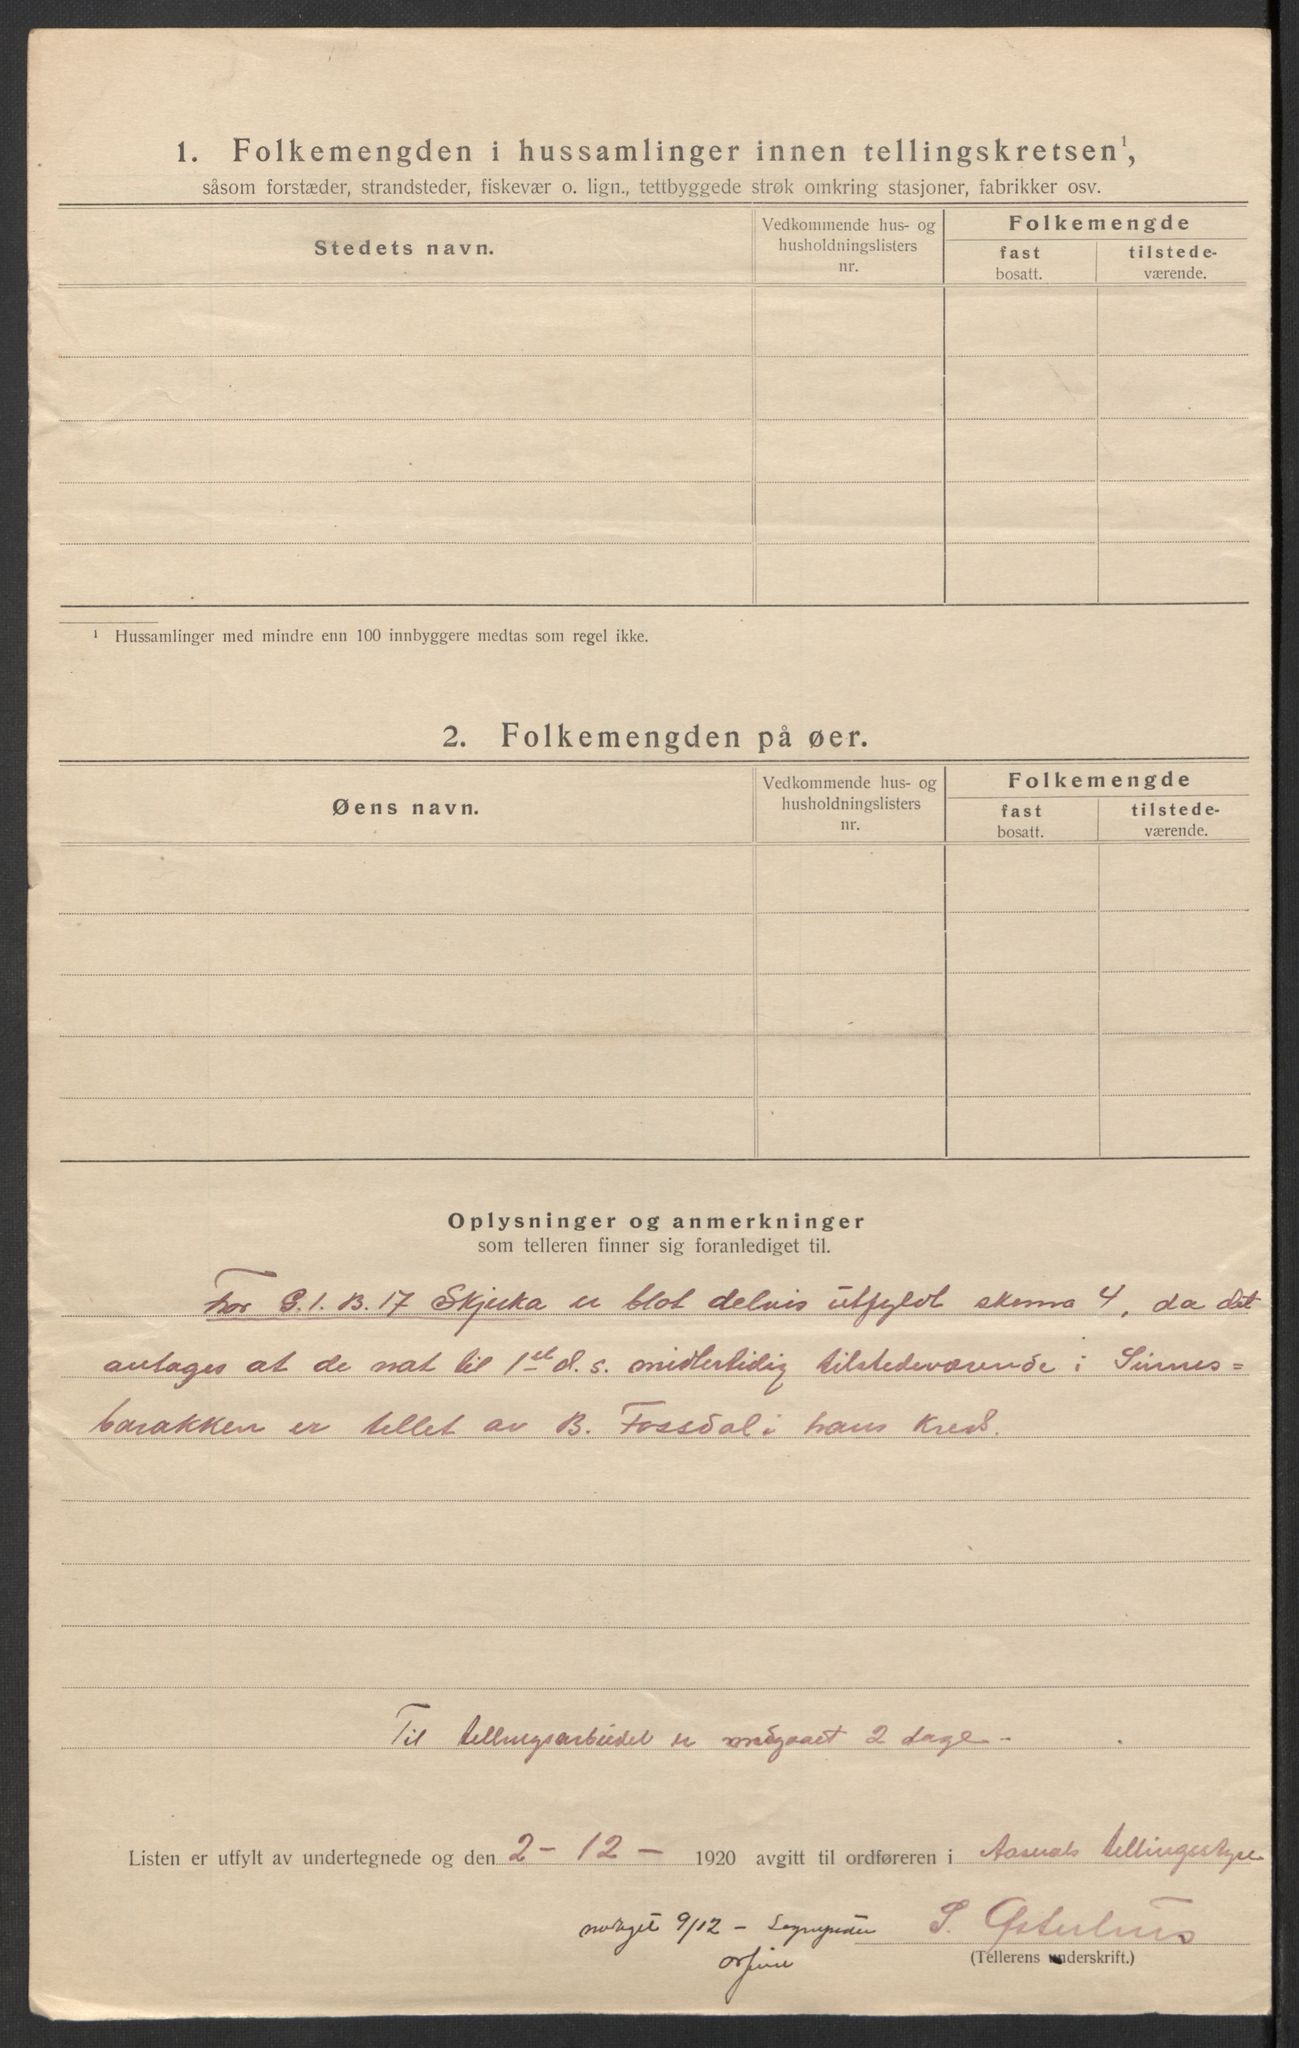 1. Folkemengden i hussamlinger innen tellingskretsen¹,
såsom forstæder, strandsteder, fiskevær o. lign., tettbyggede strøk omkring stasjoner, fabrikker osv.
Stedets navn.
Vedkommende hus- og
husholdningslisters
nr.
Folkemengde
fast
bosatt.
tilstede-
værende.
¹ Hussamlinger med mindre enn 100 innbyggere medtas som regel ikke.
2. Folkemengden på øer.
Øens navn.
Vedkommende hus- og
husholdningslisters
nr.
Folkemengde
fast
bosatt.
tilstede-
værende.
Oplysninger og anmerkninger
som telleren finner sig foranlediget til.
For G. 1. B. 17 Skjerka er blot delvis utfyldt skema 4, da det
antages at de nat til 1ste d. s. midlertidig tilstedeværende i Sinnes=
barakken er tellet av B. Fossdal i hans kreds.
Til tellingsarbeidet er medgaaet 2 dage -
Listen er utfylt av undertegnede og den 2 - 12 - 1920 avgitt til ordføreren i Aaserals tellingsstyre
S. Østerhus
mottaget 9/12 -
(Tellerens underskrift.)